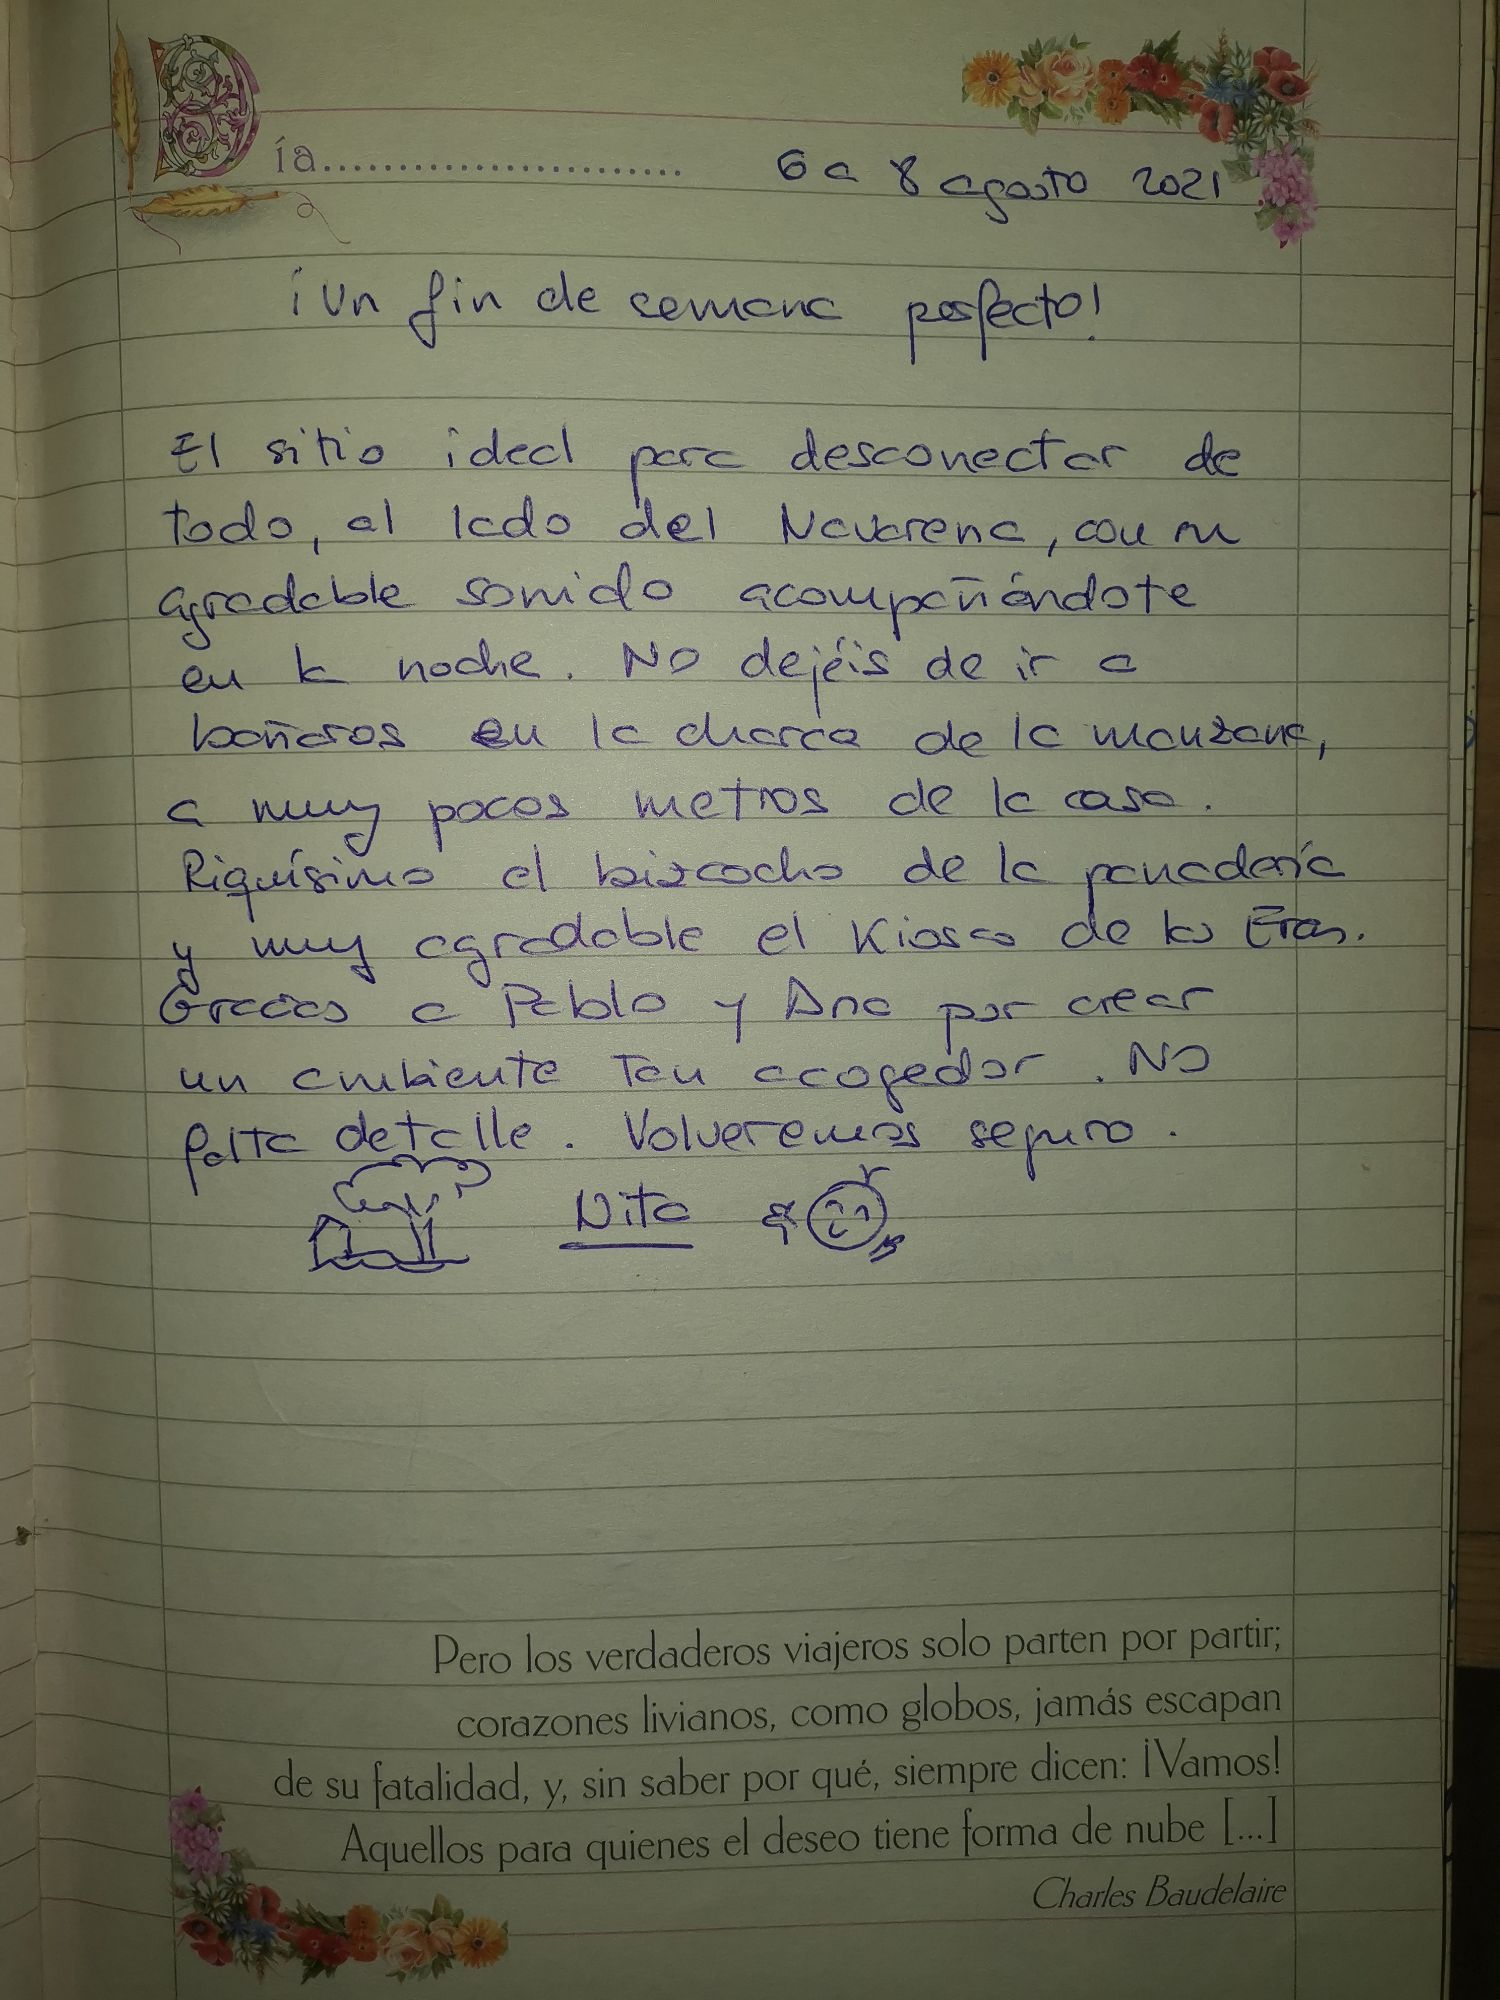 Día........................ 6 a 8 agosto 2021
¡Un fin de semana perfecto!
El sitio ideal para desconectar de
todo, al lado del Navarena, con su
agradable sonido acompañándote
en la noche. No dejéis de ir a
bañaros en la charca de la manzana,
a muy pocos metros de la casa.
Riquísimo el bizcocho de la panadería
y muy agradable el Kiosco de las Eras.
Gracias a Pablo y Ana por crear
un ambiente tan acogedor. No
falta detalle. Volveremos seguro.
Nita
Pero los verdaderos viajeros solo parten por partir;
corazones livianos, como globos, jamás escapan
de su fatalidad, y, sin saber por qué, siempre dicen: ¡Vamos!
Aquellos para quienes el deseo tiene forma de nube [...]
Charles Baudelaire